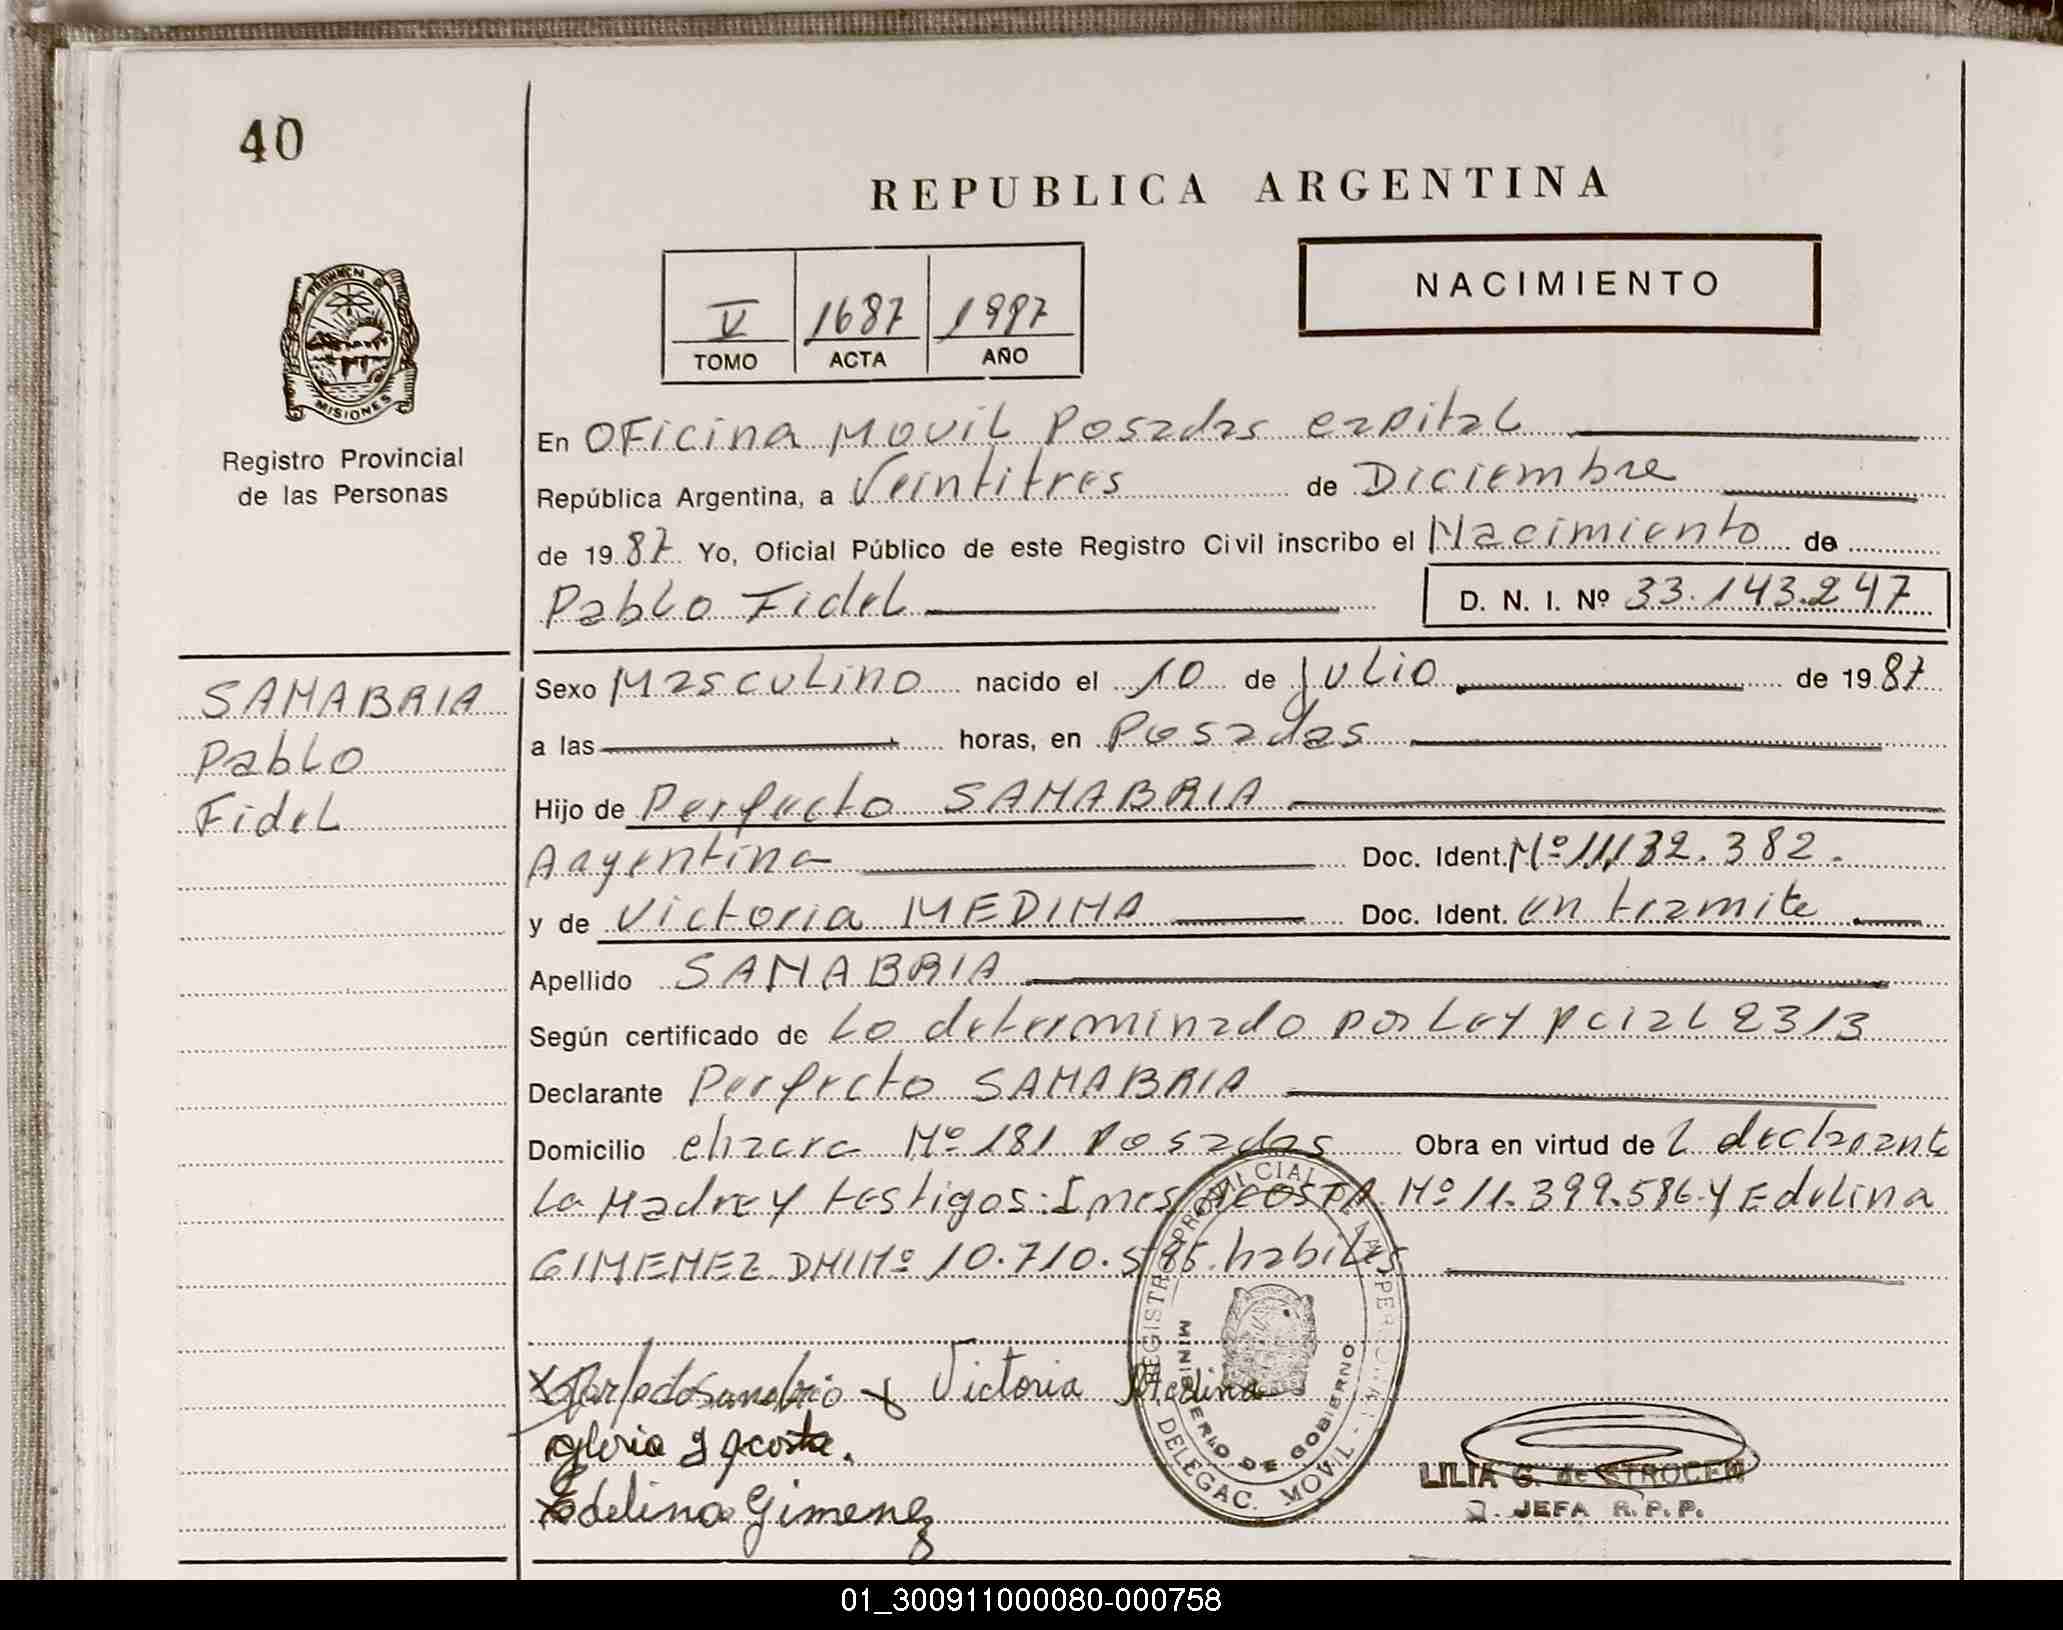 40
REPUBLICA ARGENTINA
NACIMIENTO
V 1687 1987
TOMO ACTA AÑO
PROVINCIA DE
MISIONES
Registro Provincial
de las Personas
En OFicina Movil Posadas capital
República Argentina, a Veintitres de Diciembre
de 1987 Yo, Oficial Público de este Registro Civil inscribo el Nacimiento de
Pablo Fidel D. N. I. Nº 33.143.247
SANABRIA
Pablo
Fidel
Sexo Masculino nacido el 10 de Julio de 1987
a las horas, en Posadas
Hijo de Perfecto SANABRIA
Argentina Doc. Ident. Nº 11.132.382.
y de Victoria MEDINA Doc. Ident. en tramite
Apellido SANABRIA
Según certificado de Lo determinado por Ley pcial 2313
Declarante Perfecto SANABRIA
Domicilio chacra Nº 181 Posadas Obra en virtud de L declarante
La Madre y testigos: Ines ACOSTA Nº 11.399.586 y Edelina
GIMENEZ DNI Nº 10.710.595 habiles
Perfecto Sanabria y Victoria Medina
Gloria I Acosta.
Edelina Gimenez
REGISTRO PROVINCIAL DE LAS PERSONAS
MINISTERIO DE GOBIERNO
DELEGAC. MOVIL
LILIA G. de STROCEN
JEFA R.P.P.
01_300911000080-000758